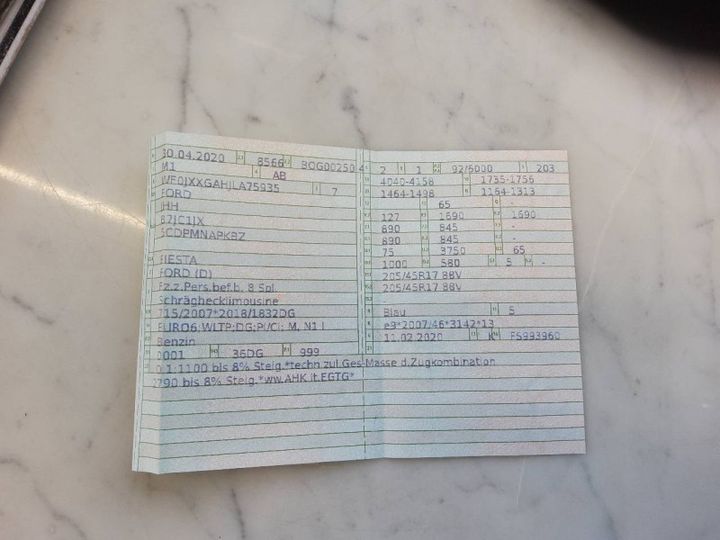 30.04.2020 8566 BOG00250 4
M1 AB
WF0JXXGAHJLA75935 7
FORD
JHH
B7JC1JX
5CDPMNAPKBZ
FIESTA
FORD (D)
Fz.z.Pers.bef.b. 8 Spl.
Schräghecklimousine
715/2007*2018/1832DG
EURO6;WLTP;DG;PI/CI; M, N1 I
Benzin
0001 36DG 999
2 1 92/6000 203
4040-4158 1735-1756
1464-1498 1164-1313
65 -
127 1690 1690
890 845 -
890 845 -
75 3750 65
1000 580 5 -
205/45R17 88V
205/45R17 88V
Blau 5
e9*2007/46*3142*13
11.02.2020 K
O.1:1100 bis 8% Steig.*techn.zul.Ges-Masse d.Zugkombination
2790 bis 8% Steig.*ww.AHK lt.EGTG*